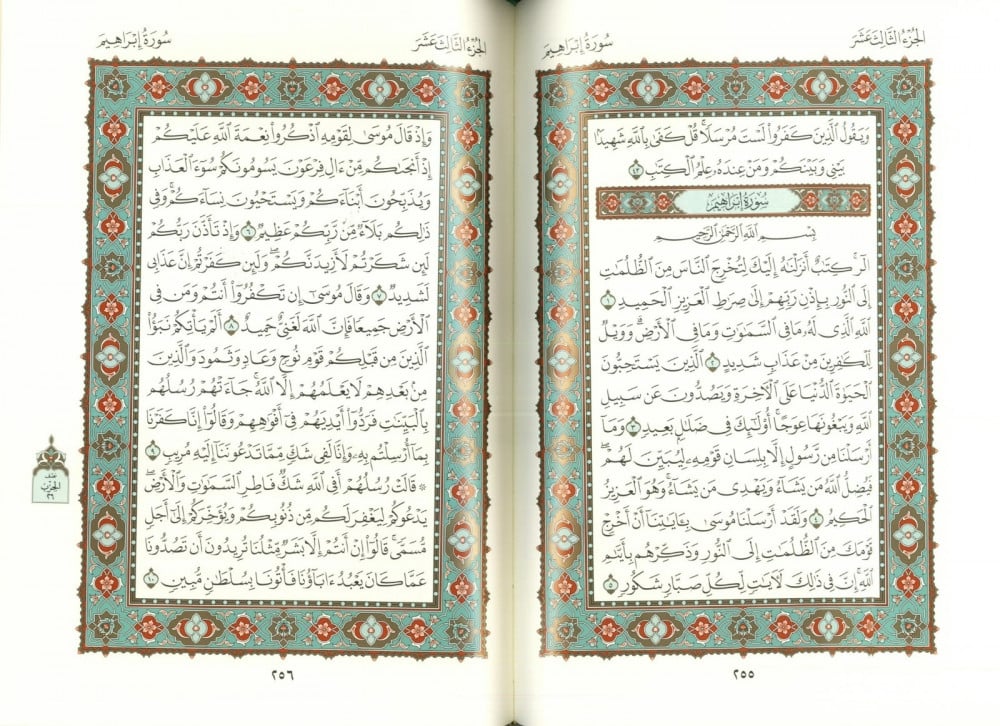 الجزء الثالث عشر
سورة إبراهيم
وَيَقُولُ ٱلَّذِينَ كَفَرُواْ لَسْتَ مُرْسَلًاۚ قُلْ كَفَىٰ بِٱللَّهِ شَهِيدًۢا
بَيْنِى وَبَيْنَكُمْ وَمَنْ عِندَهُۥ عِلْمُ ٱلْكِتَٰبِ ٤٣
سورة إبراهيم
بِسْمِ ٱللَّهِ ٱلرَّحْمَٰنِ ٱلرَّحِيمِ
الٓرۚ كِتَٰبٌ أَنزَلْنَٰهُ إِلَيْكَ لِتُخْرِجَ ٱلنَّاسَ مِنَ ٱلظُّلُمَٰتِ
إِلَى ٱلنُّورِ بِإِذْنِ رَبِّهِمْ إِلَىٰ صِرَٰطِ ٱلْعَزِيزِ ٱلْحَمِيدِ ١
ٱللَّهِ ٱلَّذِى لَهُۥ مَا فِى ٱلسَّمَٰوَٰتِ وَمَا فِى ٱلْأَرْضِۗ وَوَيْلٌ
لِّلْكَٰفِرِينَ مِنْ عَذَابٍ شَدِيدٍ ٢ ٱلَّذِينَ يَسْتَحِبُّونَ
ٱلْحَيَوٰةَ ٱلدُّنْيَا عَلَى ٱلْأَخِرَةِ وَيَصُدُّونَ عَن سَبِيلِ
ٱللَّهِ وَيَبْغُونَهَا عِوَجًاۚ أُوْلَٰٓئِكَ فِى ضَلَٰلٍۭ بَعِيدٍ ٣ وَمَآ
أَرْسَلْنَا مِن رَّسُولٍ إِلَّا بِلِسَانِ قَوْمِهِۦ لِيُبَيِّنَ لَهُمْۖ
فَيُضِلُّ ٱللَّهُ مَن يَشَآءُ وَيَهْدِى مَن يَشَآءُۚ وَهُوَ ٱلْعَزِيزُ
ٱلْحَكِيمُ ٤ وَلَقَدْ أَرْسَلْنَا مُوسَىٰ بِـَٔايَٰتِنَآ أَنْ أَخْرِجْ
قَوْمَكَ مِنَ ٱلظُّلُمَٰتِ إِلَى ٱلنُّورِ وَذَكِّرْهُم بِأَيَّىٰمِ
ٱللَّهِۚ إِنَّ فِى ذَٰلِكَ لَأَيَٰتٍ لِّكُلِّ صَبَّارٍ شَكُورٍ ٥
٢٥٥
الجزء الثالث عشر
سورة إبراهيم
وَإِذْ قَالَ مُوسَىٰ لِقَوْمِهِ ٱذْكُرُواْ نِعْمَةَ ٱللَّهِ عَلَيْكُمْ
إِذْ أَنجَىٰكُم مِّنْ ءَالِ فِرْعَوْنَ يَسُومُونَكُمْ سُوٓءَ ٱلْعَذَابِ
وَيُذَبِّحُونَ أَبْنَآءَكُمْ وَيَسْتَحْيُونَ نِسَآءَكُمْۚ وَفِى
ذَٰلِكُم بَلَآءٌ مِّن رَّبِّكُمْ عَظِيمٌ ٦ وَإِذْ تَأَذَّنَ رَبُّكُمْ
لَئِن شَكَرْتُمْ لَأَزِيدَنَّكُمْۖ وَلَئِن كَفَرْتُمْ إِنَّ عَذَابِى
لَشَدِيدٌ ٧ وَقَالَ مُوسَىٰٓ إِن تَكْفُرُوٓاْ أَنتُمْ وَمَن فِى
ٱلْأَرْضِ جَمِيعًا فَإِنَّ ٱللَّهَ لَغَنِىٌّ حَمِيدٌ ٨ أَلَمْ يَأْتِكُمْ نَبَؤُاْ
ٱلَّذِينَ مِن قَبْلِكُمْ قَوْمِ نُوحٍ وَعَادٍ وَثَمُودَ وَٱلَّذِينَ
مِنۢ بَعْدِهِمْ لَا يَعْلَمُهُمْ إِلَّا ٱللَّهُۚ جَآءَتْهُمْ رُسُلُهُم
بِٱلْبَيِّنَٰتِ فَرَدُّوٓاْ أَيْدِيَهُمْ فِىٓ أَفْوَٰهِهِمْ وَقَالُوٓاْ إِنَّا كَفَرْنَا
بِمَآ أُرْسِلْتُم بِهِۦ وَإِنَّا لَفِى شَكٍّ مِّمَّا تَدْعُونَنَآ إِلَيْهِ مُرِيبٍ ٩
۞ قَالَتْ رُسُلُهُمْ أَفِى ٱللَّهِ شَكٌّ فَاطِرِ ٱلسَّمَٰوَٰتِ وَٱلْأَرْضِۖ
يَدْعُوكُمْ لِيَغْفِرَ لَكُم مِّن ذُنُوبِكُمْ وَيُؤَخِّرَكُمْ إِلَىٰٓ أَجَلٍ
مُّسَمًّىۚ قَالُوٓاْ إِنْ أَنتُمْ إِلَّا بَشَرٌ مِّثْلُنَا تُرِيدُونَ أَن تَصُدُّونَا
عَمَّا كَانَ يَعْبُدُ ءَابَآؤُنَا فَأْتُونَا بِسُلْطَٰنٍ مُّبِينٍ ١٠
نصف
الحزب
٢٦
٢٥٦